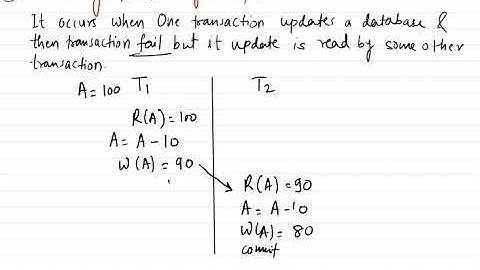 It occurs when One transaction updates a database &
then transaction fail but it update is read by some other
transaction.
A = 100 T1 T2
R(A) = 100
A = A - 10
W(A) = 90
R(A) = 90
A = A - 10
W(A) = 80
comit